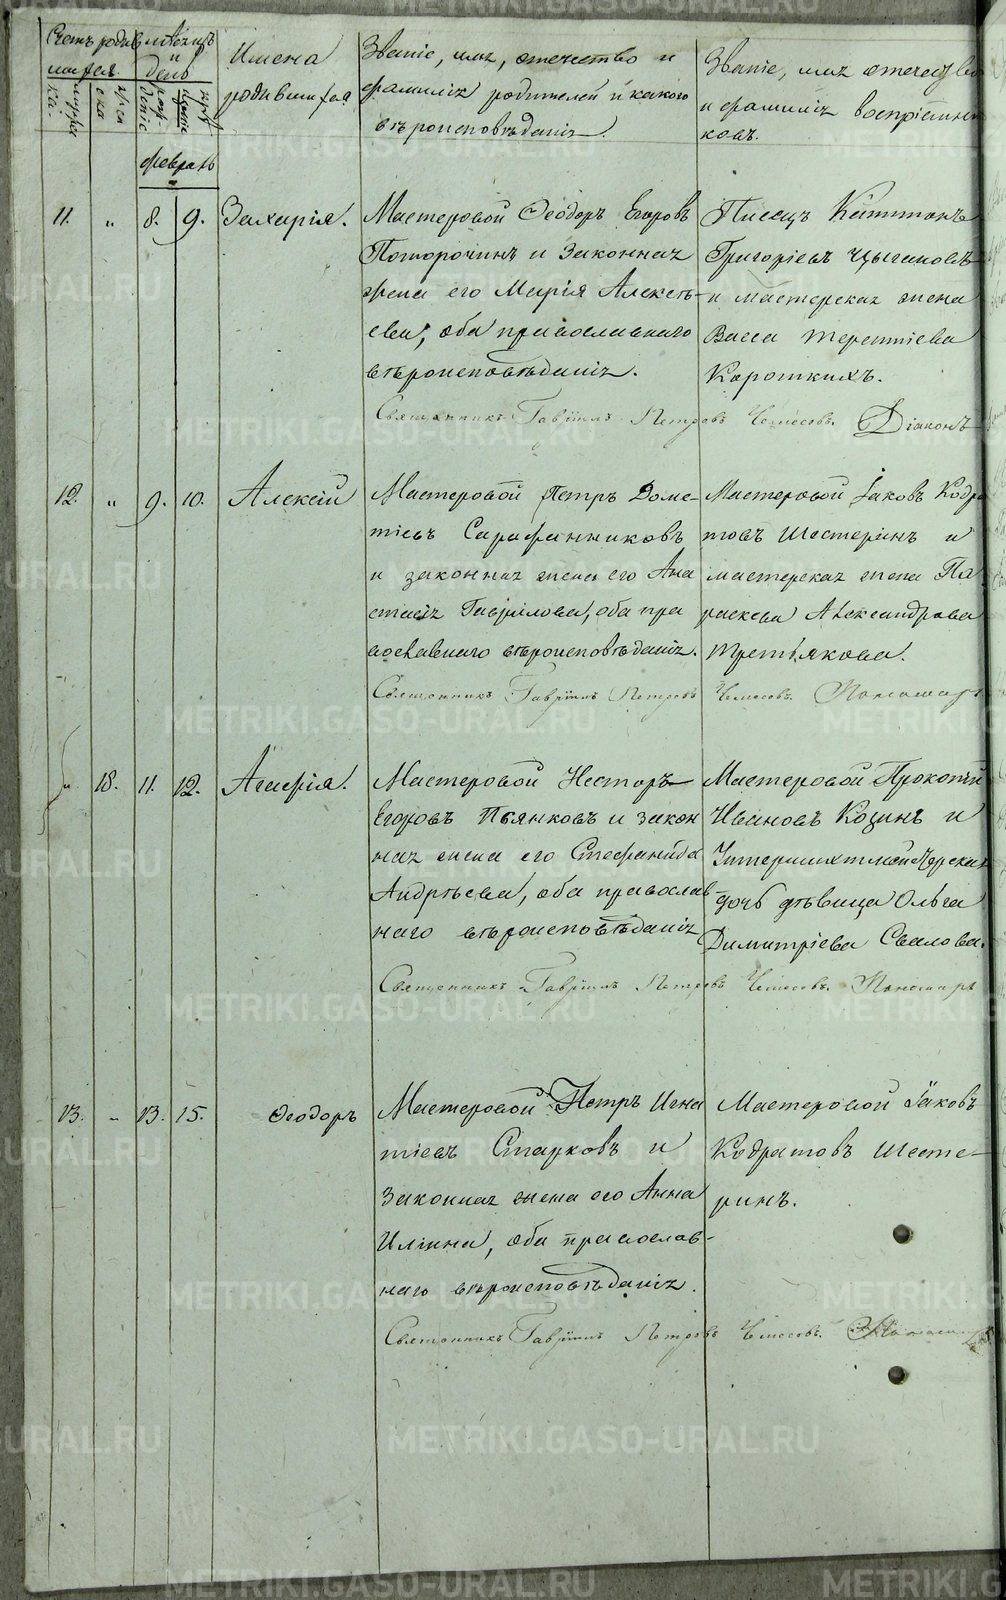 Счетъ родив
шихся
Мѣсяцъ
и
день
Имена
родившихся
Званіе, имя, отечество и
фамилія родителей и какого
вѣроисповѣданія.
Званіе, имя отечество
и фамилія воспріемни
ковъ.
февраль
11. „ 8. 9. Захарія.
Мастеровой Ѳеодоръ Егоровъ
и Законная
жена его Марія Алексѣ-
ева, оба православнаго
вѣроисповѣданія.
Писецъ
Григорьевъ Цыгановъ
и мастерская жена
Васса Терентіева
Короткихъ.
Священникъ Гавріилъ Петровъ Діаконъ
12. „ 9. 10. Алексій
Мастеровой Петръ Доме-
тіевъ Сарафанниковъ
и законная жена его Ана
стасія Гаврілова, оба пра
вославнаго вѣроисповѣданія.
Мастеровой Іаковъ Кодра
товъ Шестеринъ и
мастерская жена Па
раскева Александрова
Третьякова.
Священникъ Гавріилъ Петровъ Пономарь
„ 18. 11. 12. Агафія.
Мастеровой Несторъ
Егоровъ Пьянковъ и закон
ная жена его Стефанида
Андрѣева, оба православ
наго вѣроисповѣданія
Мастеровой Прокопій
Ивановъ Козинъ и
дочь дѣвица Ольга
Димитріева Свалова.
Священникъ Гавріилъ Петровъ Пономарь
13. „ 13. 15. Ѳеодоръ
Мастеровой Петръ Игна
тіевъ Старковъ и
Законная жена его Анна
Иліина, оба православ-
наго вѣроисповѣданія.
Мастеровой Іаковъ
Кодратовъ Шесте-
ринъ.
Священникъ Гавріилъ Петровъ Пономарь
METRIKI.GASO-URAL.RU